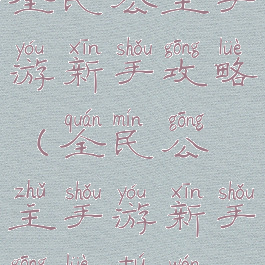 全民公主手
yóu xīn shǒu gōng lüè
游新手攻略
quán mín gōng
（全民公
zhǔ shǒu yóu xīn shǒu
主手游新手
gōng lüè